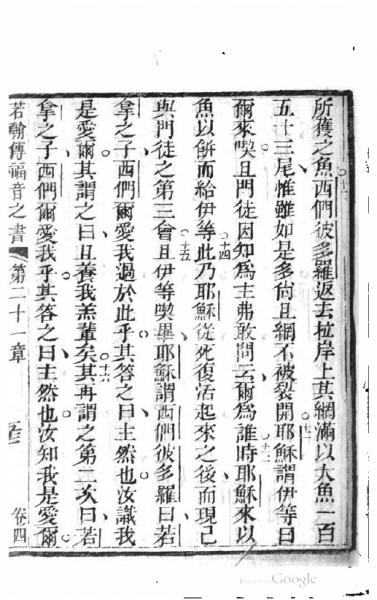 所獲之魚西們彼多羅返去拉岸上其網滿以大魚一百
五十三尾惟雖如是多尙且網不被裂開耶穌謂伊等曰
爾來喫且門徒因知為主弗敢問云爾為誰時耶穌來以
魚以餅而給伊等此乃耶穌從死復活起來之後而現己
與門徒之第三會且伊等喫畢耶穌謂西們彼多羅曰若
拿之子西們爾愛我過於此乎其答之曰主然也汝識我
是愛爾其謂之曰且養我羔輩矣其再謂之第二次曰若
拿之子西們爾愛我乎其答之曰主然也汝知我是愛爾
若翰傳福音之書
第二十一章
卷四
十一
十二
十三
十四
十五
十六
Google